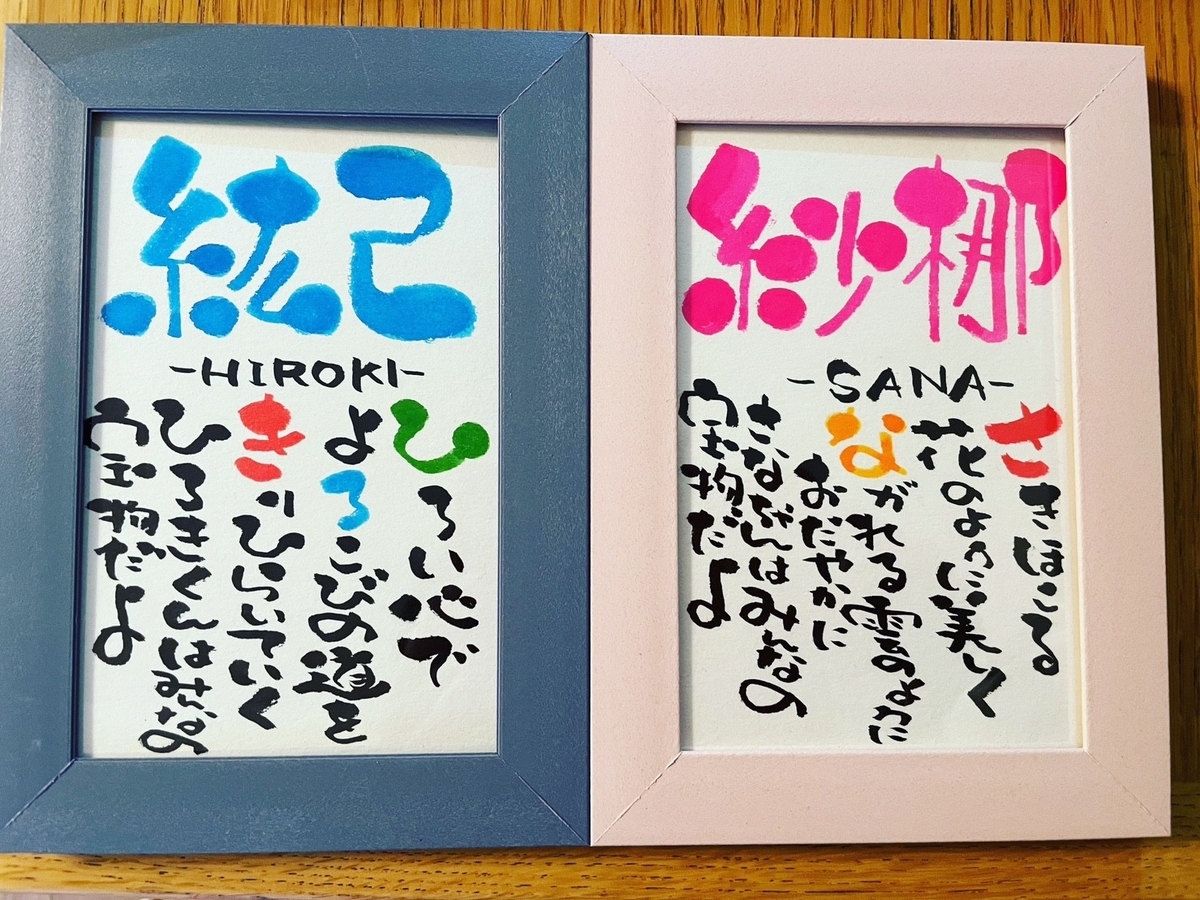 紘己
-HIROKI-
ひろい心で
よろこびの道を
きりひらいていく
ひろきくんはみんなの
宝物だよ
紗梛
-SANA-
さきほこる
花のように美しく
ながれる雲のように
おだやかに
さなちゃんはみんなの
宝物だよ